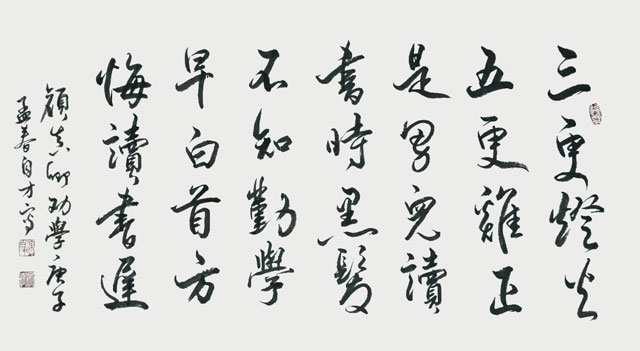 三更燈火
五更雞正
是男兒讀
書時黑髮
不知勤學
早白首方
悔讀書遲
顏真卿功學庚子
孟春自才寫